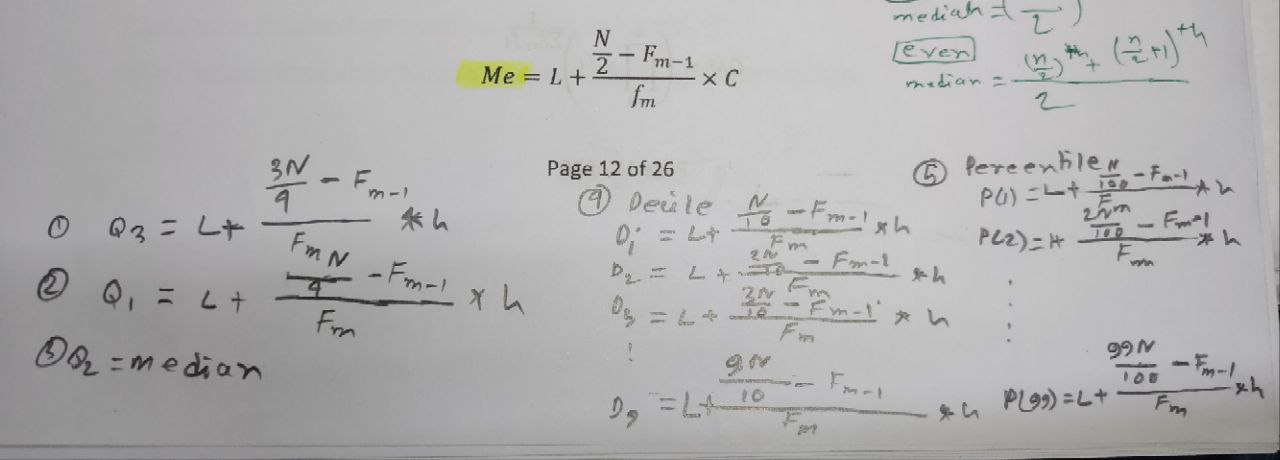 median = ( /2 )
even
median = ((n/2)^th + (n/2 + 1)^th) / 2
Me = L + (N/2 − F_m−1) / f_m × C
Page 12 of 26
① Q3 = L + (3N/4 − F_m-1) / F_m * h
② Q1 = L + (N/4 − F_m-1) / F_m × h
③ Q2 = median
④ Decile
D1 = L + (N/10 − F_m-1) / F_m * h
D2 = L + (2N/10 − F_m-1) / F_m * h
D3 = L + (3N/10 − F_m-1) / F_m * h
⋮
D9 = L + (9N/10 − F_m-1) / F_m * h
⑤ Percentile
P(1) = L + (N/100 − F_m-1) / F_m * h
P(2) = L + (2N/100 − F_m-1) / F_m * h
⋮
P(99) = L + (99N/100 − F_m-1) / F_m * h